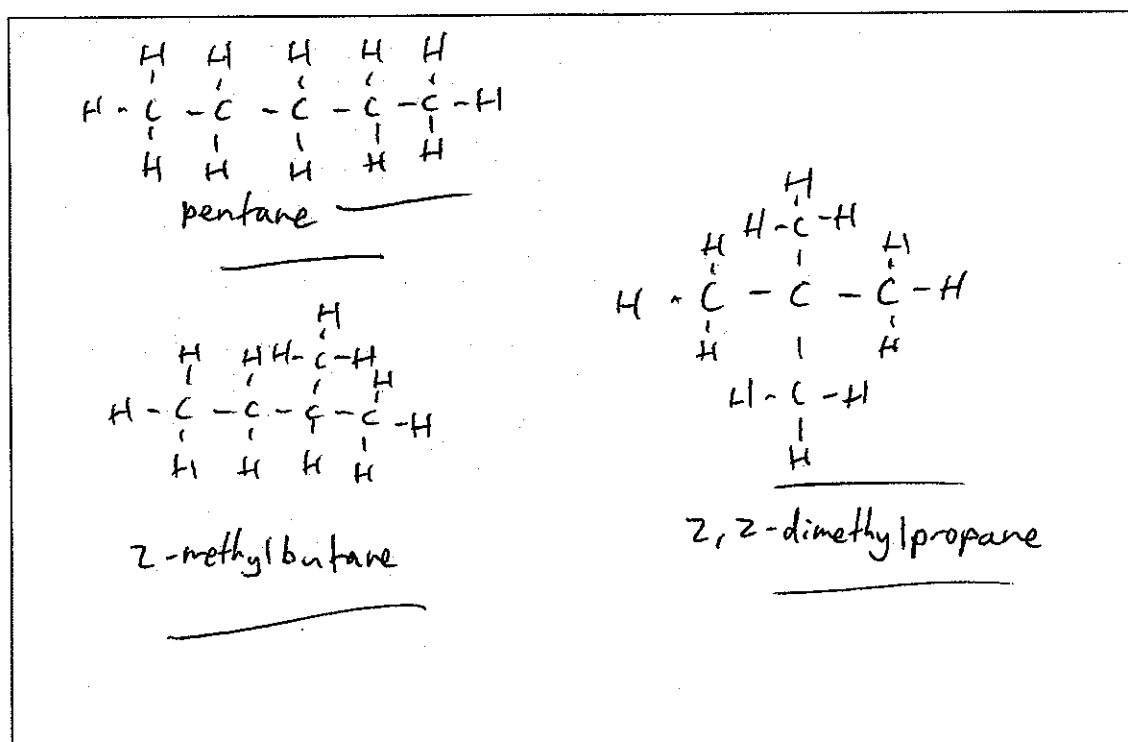 H H H H H
H - C - C - C - C - C - H
H H H H H
pentane
H
H H H - C - H H
H - C - C - C - C - H
H H H H
2-methylbutane
H
H - C - H
H H
H - C - C - C - H
H H
H - C - H
H
2,2-dimethylpropane